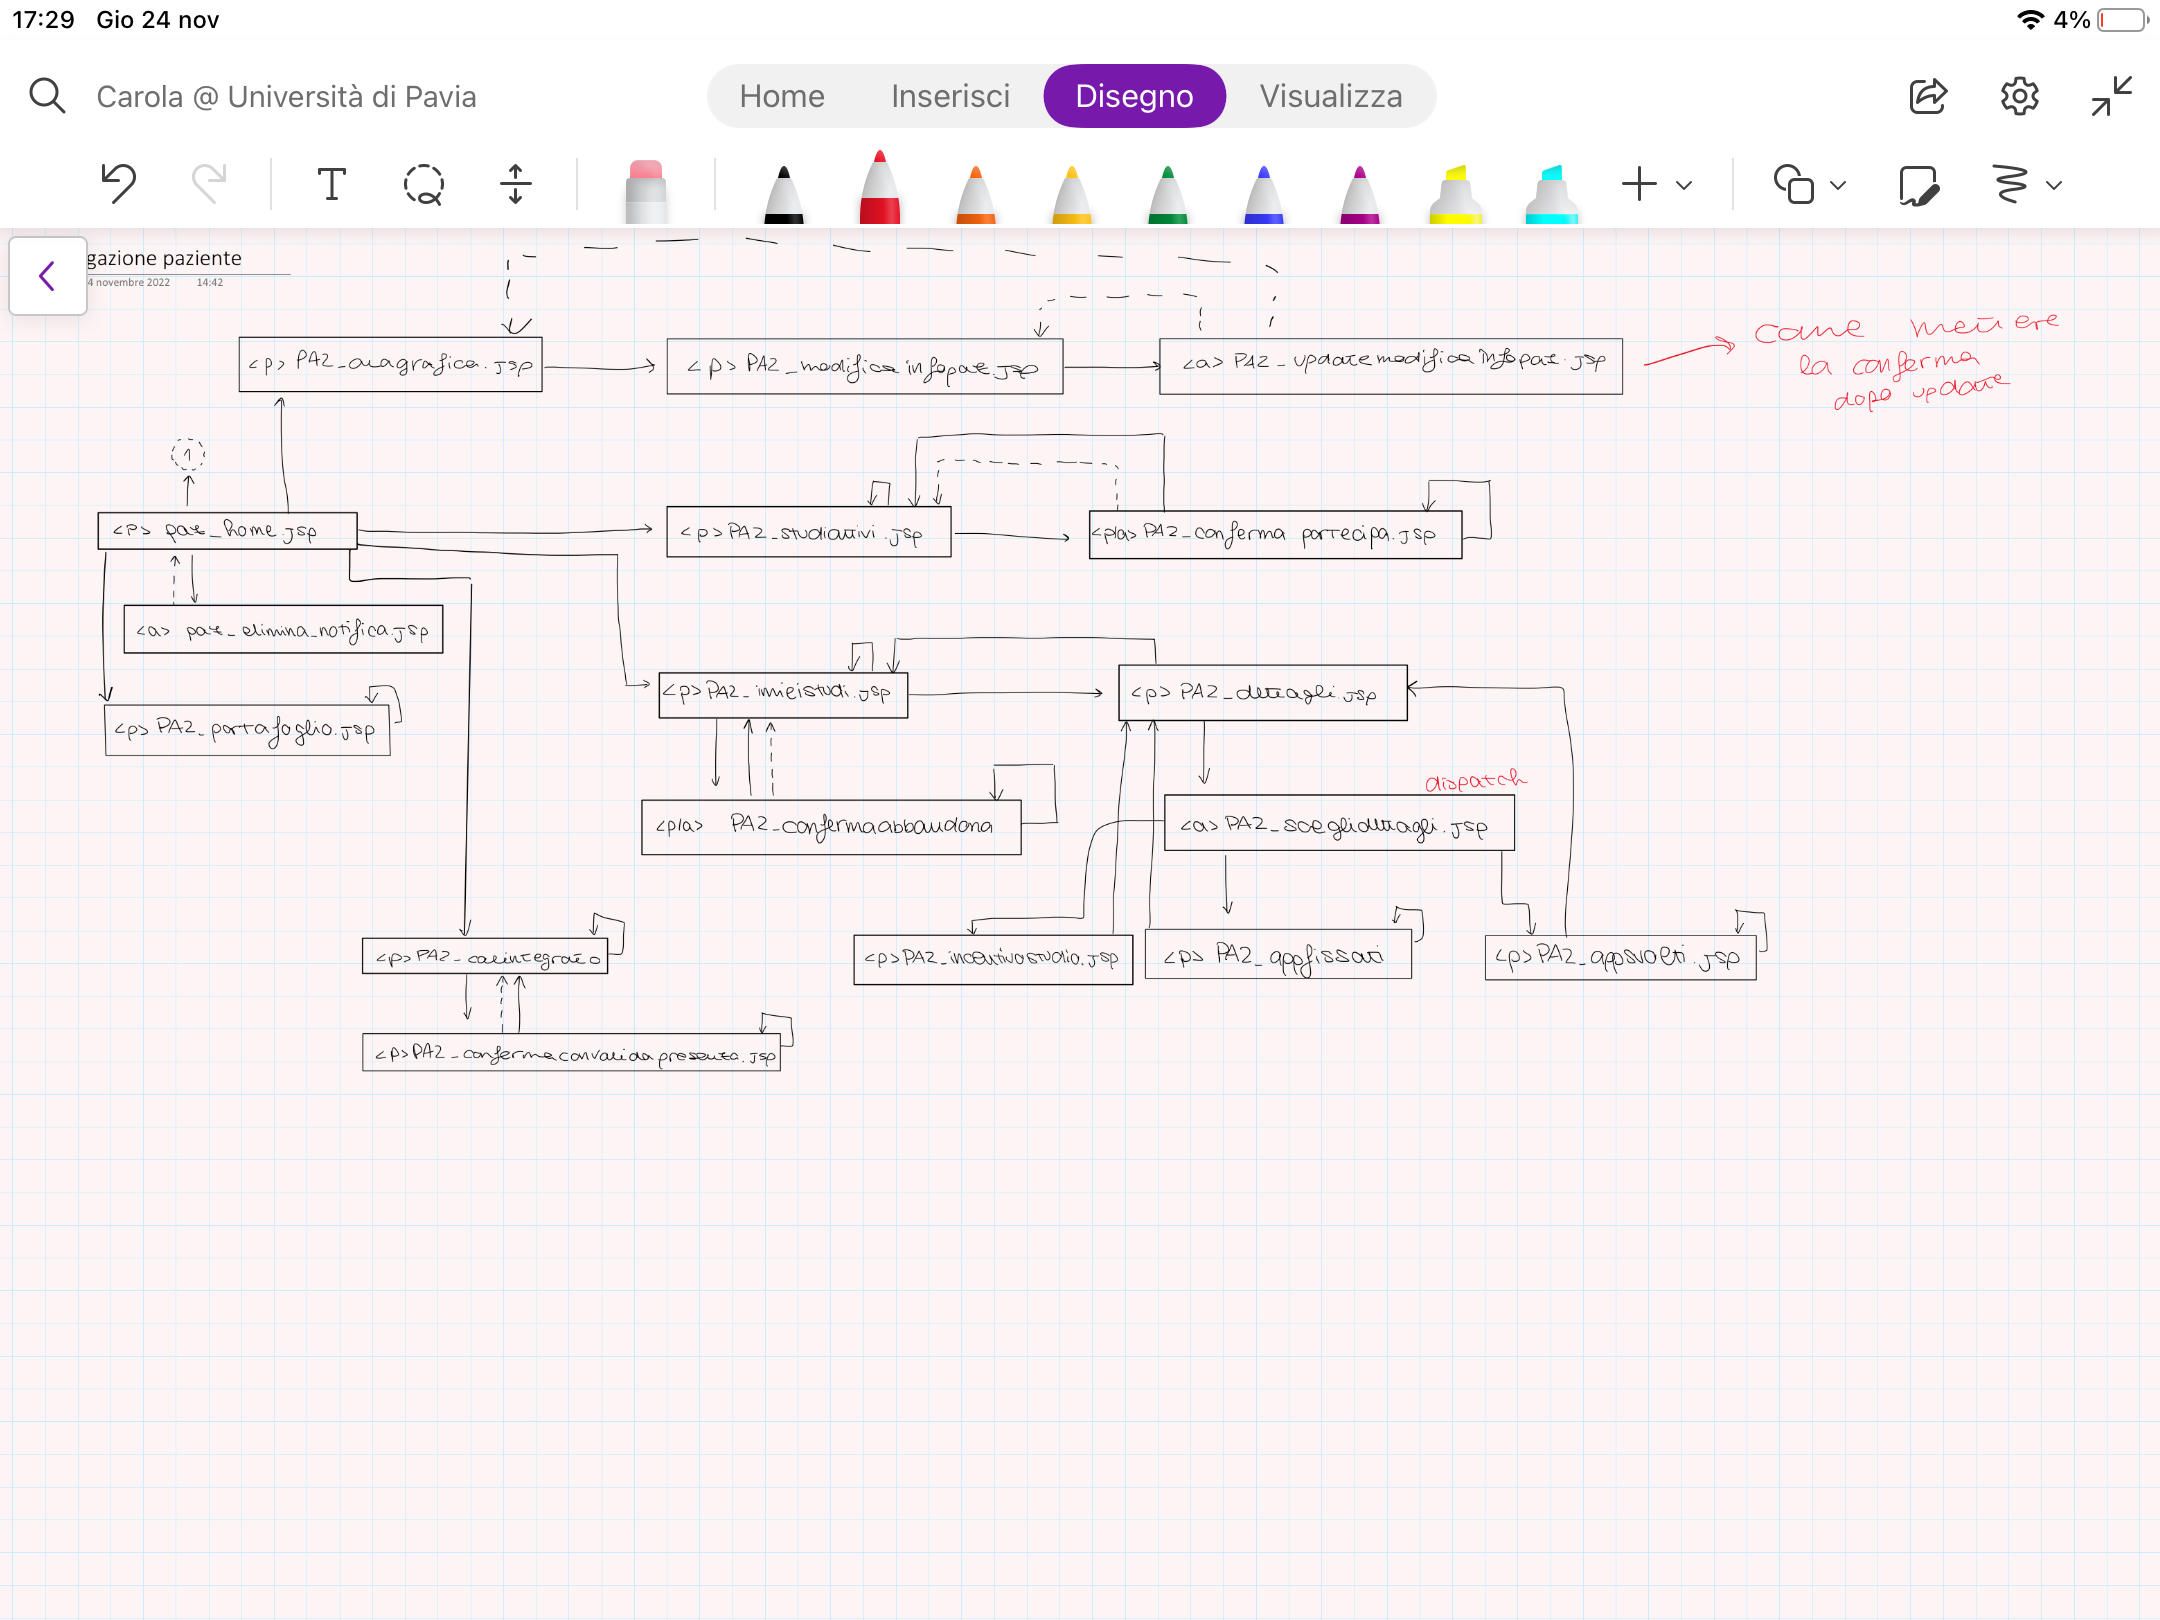 17:29 Gio 24 nov
4%
Carola @ Università di Pavia
Home Inserisci Disegno Visualizza
gazione paziente
4 novembre 2022 14:42
<p> PAZ_anagrafica.jsp
<p> PAZ_modificainfopaz.jsp
<a> PAZ_updatemodificainfopaz.jsp
come mettere
la conferma
dopo update
1
<p> paz_home.jsp
<p> PAZ_studiattivi.jsp
<p|a> PAZ_conferma partecipa.jsp
<a> paz_elimina_notifica.jsp
<p> PAZ_imieistudi.jsp
<p> PAZ_dettagli.jsp
<p> PAZ_portafoglio.jsp
dispatch
<p|a> PAZ_confermaabbandona
<a> PAZ_sceglidettagli.jsp
<p> PAZ_calintegrato
<p> PAZ_incentivostudio.jsp
<p> PAZ_appfissati
<p> PAZ_appsvolti.jsp
<p> PAZ_confermaconvalidapresenza.jsp